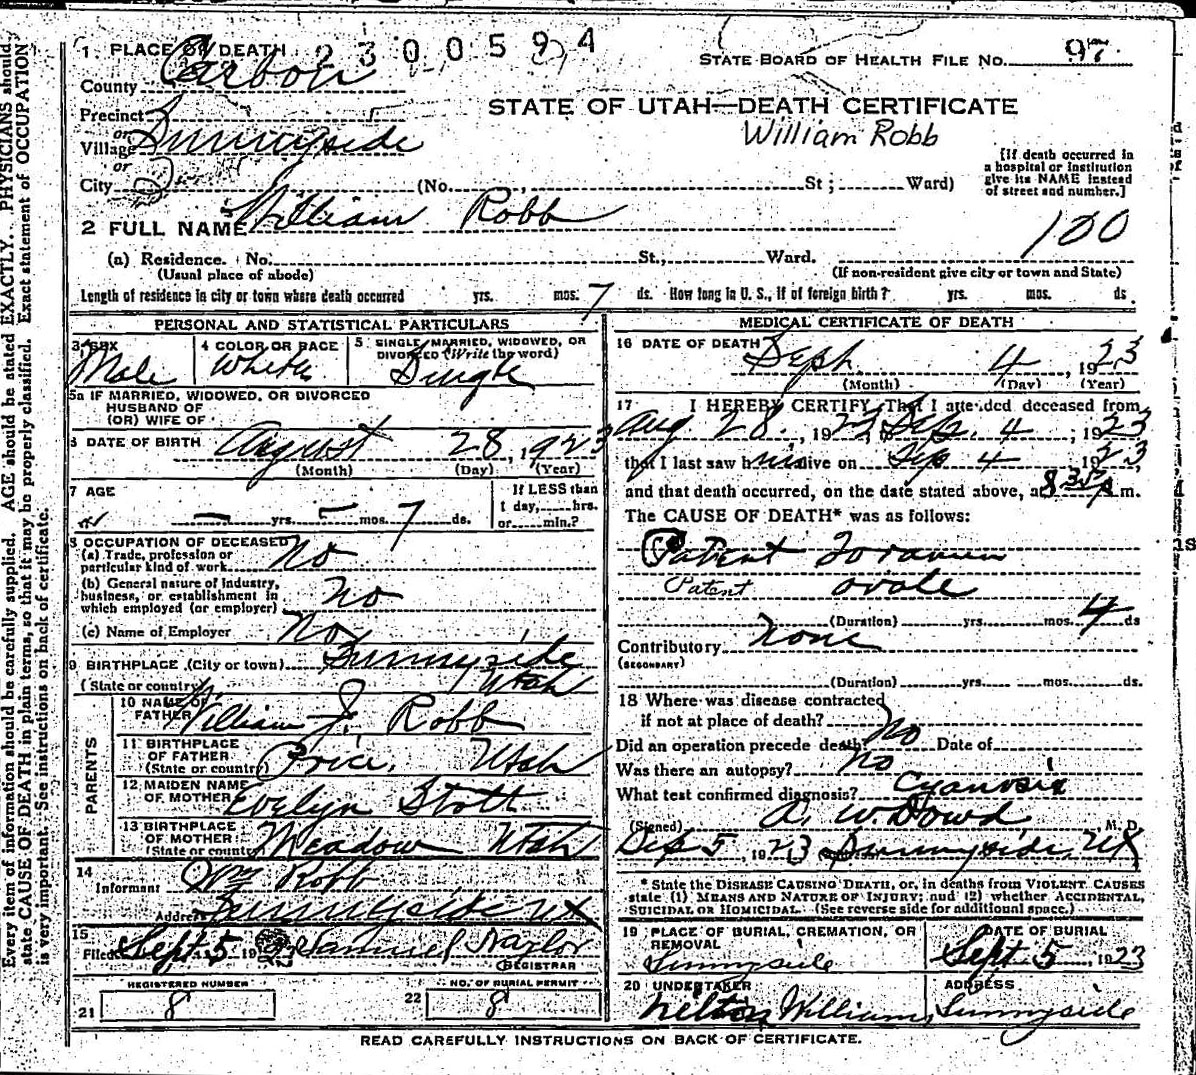 Every item of information should be carefully supplied. AGE should be stated EXACTLY. PHYSICIANS should
state CAUSE OF DEATH in plain terms, so that it may be properly classified. Exact statement of OCCUPATION
is very important. See instructions on back of certificate.
1 PLACE OF DEATH 2300594
County Carbon
STATE BOARD OF HEALTH FILE No. 97
STATE OF UTAH—DEATH CERTIFICATE
William Robb
Precinct
or
Village Sunnyside
or
City (No. St; Ward)
[If death occurred in
a hospital or institution
give its NAME instead
of street and number.]
2 FULL NAME William Robb
100
(a) Residence. No. St., Ward.
(Usual place of abode) (If non-resident give city or town and State)
Length of residence in city or town where death occurred yrs. mos. 7 ds. How long in U. S., if of foreign birth? yrs. mos. ds.
PERSONAL AND STATISTICAL PARTICULARS
3 SEX Male
4 COLOR OR RACE White
5 SINGLE, MARRIED, WIDOWED, OR
DIVORCED (Write the word)
Single
5a IF MARRIED, WIDOWED, OR DIVORCED
HUSBAND OF
(OR) WIFE OF
6 DATE OF BIRTH August 28, 1923
(Month) (Day) (Year)
7 AGE
— yrs. – mos. 7 ds.
If LESS than
1 day, hrs.
or min.?
8 OCCUPATION OF DECEASED
(a) Trade, profession or
particular kind of work No
(b) General nature of Industry,
business, or establishment in
which employed (or employer) No
(c) Name of Employer No
9 BIRTHPLACE (City or town) Sunnyside
(State or country) Utah
PARENTS
10 NAME OF
FATHER William J. Robb
11 BIRTHPLACE
OF FATHER
(State or country) Price, Utah
12 MAIDEN NAME
OF MOTHER Evelyn Stott
13 BIRTHPLACE
OF MOTHER
(State or country) Meadow Utah
14
Informant Wm Robb
Address Sunnyside Ut
15
Filed Sept. 5 19 Samuel Naylor
REGISTRAR
REGISTERED NUMBER
21 8
NO. OF BURIAL PERMIT
22 8
MEDICAL CERTIFICATE OF DEATH
16 DATE OF DEATH
Seph 4, 1923
(Month) (Day) (Year)
17 I HEREBY CERTIFY, That I attended deceased from
Aug 28, 1923, to Sep. 4, 1923
that I last saw him alive on Sep 4 1923
and that death occurred, on the date stated above, at 8 30 A m.
The CAUSE OF DEATH* was as follows:
Patent foramen
Patent ovale
(Duration) yrs. mos. 4 ds
Contributory None
(SECONDARY)
(Duration) yrs. mos. ds.
18 Where was disease contracted
if not at place of death?
Did an operation precede death? No Date of
Was there an autopsy? No
What test confirmed diagnosis? Cyanosis
(Signed) A. W Dowd M. D.
Sep 5, 1923 Sunnyside, Ut
* State the DISEASE CAUSING DEATH, or, in deaths from VIOLENT CAUSES
state (1) MEANS AND NATURE OF INJURY; and (2) whether ACCIDENTAL,
SUICIDAL OR HOMICIDAL. (See reverse side for additional space.)
19 PLACE OF BURIAL, CREMATION, OR
REMOVAL
Sunnyside
DATE OF BURIAL
Sept. 5 1923
20 UNDERTAKER
Williams
ADDRESS
Sunnyside
READ CAREFULLY INSTRUCTIONS ON BACK OF CERTIFICATE.